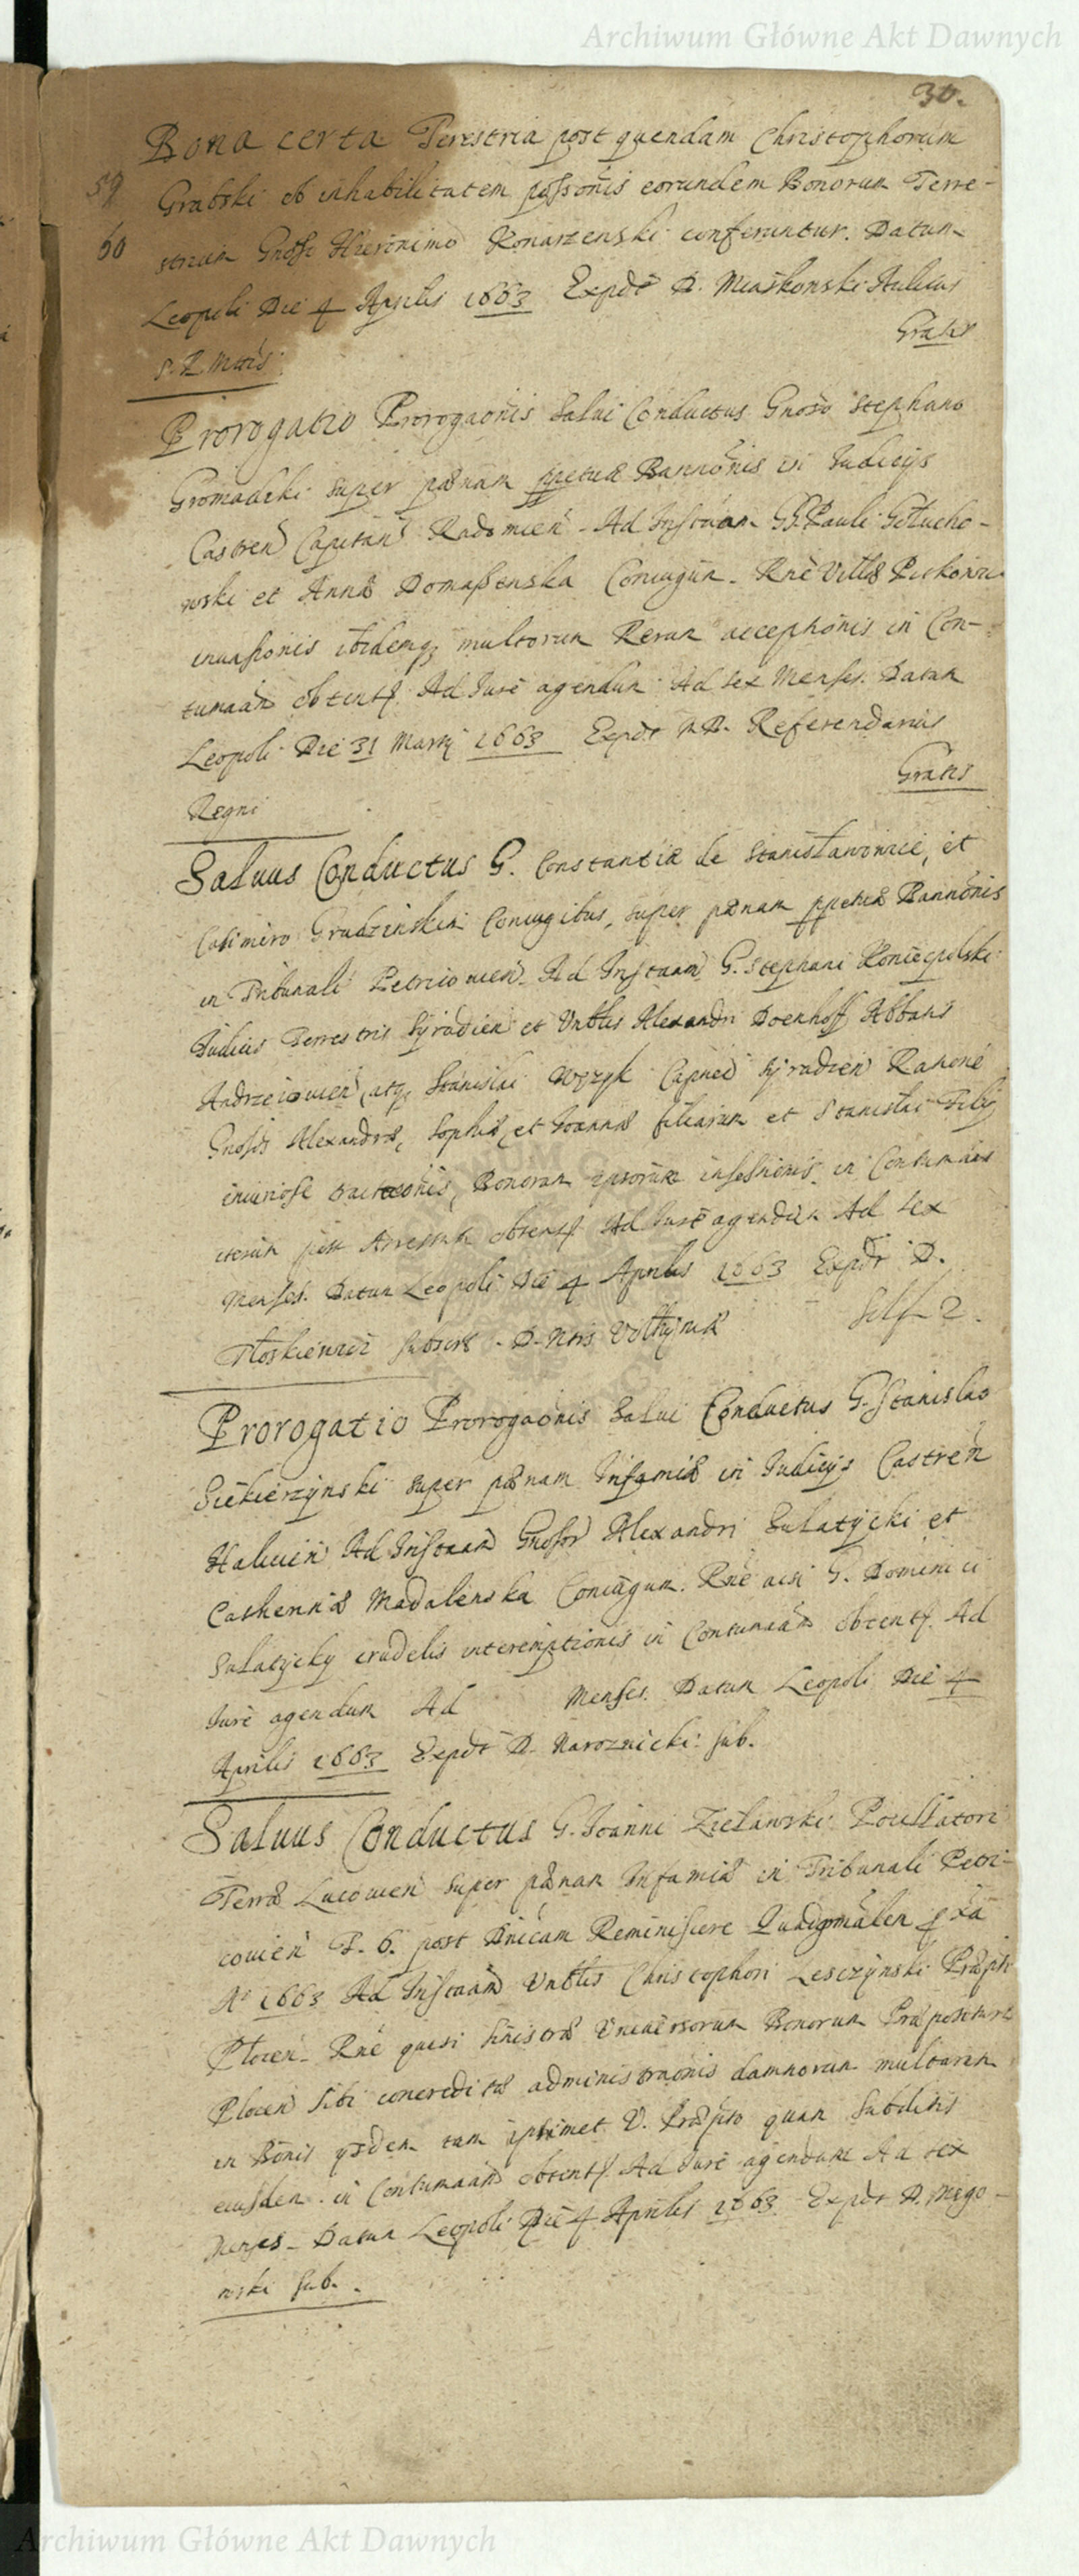 Archiwum Główne Akt Dawnych
30.
Bona certa Terestria post quendam Christophorum
59
Grabski ob inhabilitatem possonis eorundem Bonorum Terre-
60
strium Gnoso Hieronimo Konarzenski conferuntur. Datum
Leopoli Die 4 Aprilis 1663 Expdt D. Miaskowski Aulicus
Gratis
S. R. Mttis
Prorogatio Prorogaonis Salui Conductus Gnoso Stephano
Gromadzki super pænam ppetuæ Bannonis in Judicijs
Castren Capitan Radomien. Ad Instaam GG. Pauli Głucho-
wski et Annæ Domaszenska Coniugum. Rne Villæ
inuasionis ibidemq multorum Rerum acceptionis in Con-
tumaam obtent. Ad Jure agendum Ad sex Menses. Datum
Leopoli Die 31 Martij 1663 Expdt R. D. Referendarius
Gratis
Regni
Saluus Conductus G. Constantiæ de Stanisławowice, et
Casimiro Grudzinskim Coniugibus, super pænam ppetuæ Bannonis
in Tribunali Petricouien. Ad Instaam G. Stephani Koniecpolski
Judicis Terrestris Syradien et Vnblis Alexandri Doenhoff Abbatis
Andrzeiouien, atq Stanislai Wężyk Capnei Syradien Ratione
Gnosis Alexandræ, Sophiæ, et Joannæ filiarum et Stanislai Filij
iniuriose tractaonis, Bonorum ipsorum in Contumaam
iterum post Arrestum obtent. Ad Jure agendum Ad sex
Menses. Datum Leopoli Die 4 Aprilis 1663 Expdt D.
2.
D. Ntris Volhyniæ
Prorogatio Prorogaonis Salui Conductus G. Stanislao
Siekierzynski super pænam Infamiæ in Judicijs Castren
Halicien Ad Instaam Gnosor Alexandri Sulatycki et
Catherinæ Madalenska Coniugum. Rne acsi G. Dominici
Sulatycky crudelis interemptionis in Contumaam obtent. Ad
Jure agendum Ad Menses. Datum Leopoli Die 4
Aprilis 1663 Expdt D. Naroznicki Sub.
Saluus Conductus G. Joanni Zielawski Pocillatori
Terræ Lucouien super pænam Infamiæ in Tribunali Petri-
couien F. 6. post Dnicam Reminiscere Quadgmalem
Ao 1663 Ad Instaam Vnblis Christophori Lesczynski Præpti
Plocen. Rne quasi sinistræ Vniuersorum Bonorum Præposituræ
Plocen sibi concreditæ administraonis damnorum multorum
in Bonis ysdem tam ipsimet V. Præpto quam Subditis
eiusdem in Contumaam obtent. Ad Jure agendum Ad sex
Menses. Datum Leopoli Die 4 Aprilis 1663 Expdt D. Mego-
wski Sub.
Archiwum Główne Akt Dawnych